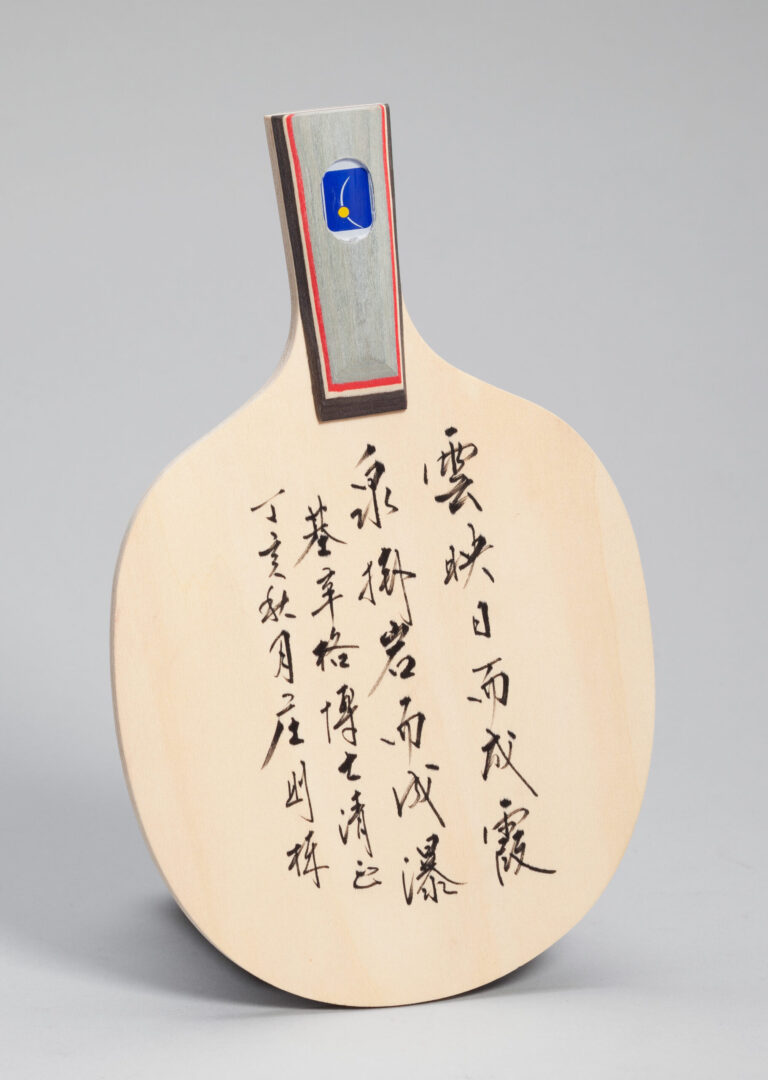 雲映日而成霞
泉掛岩而成瀑
基辛格博士清正
丁亥秋月庄则栋